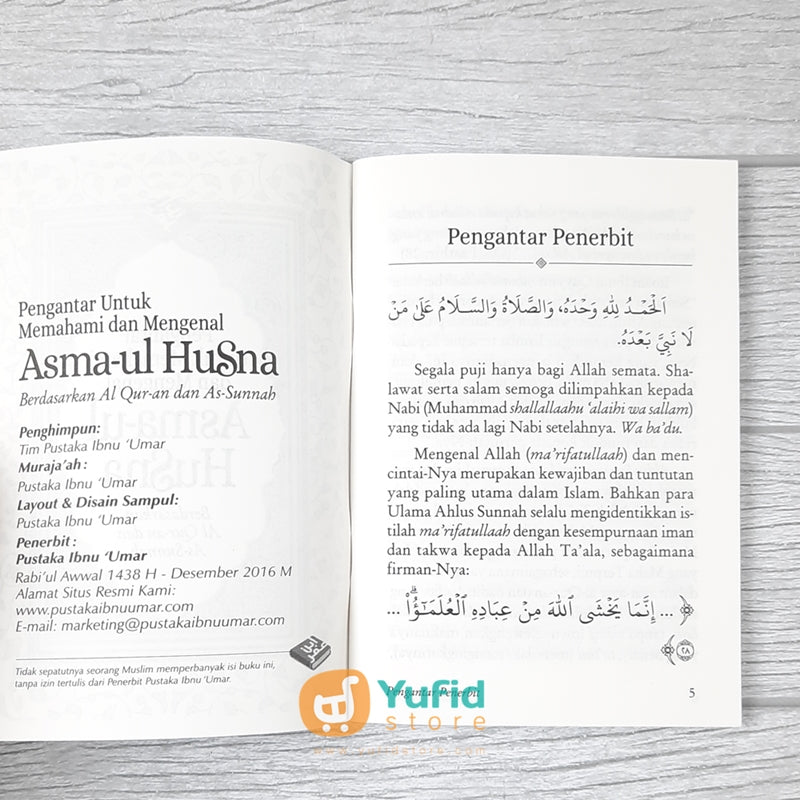 Pengantar Untuk
Memahami dan Mengenal
Asma-ul Husna
Berdasarkan Al Qur-an dan As-Sunnah
Penghimpun:
Tim Pustaka Ibnu ‘Umar
Muraja’ah:
Pustaka Ibnu ‘Umar
Layout & Disain Sampul:
Pustaka Ibnu ‘Umar
Penerbit :
Pustaka Ibnu ‘Umar
Rabi’ul Awwal 1438 H - Desember 2016 M
Alamat Situs Resmi Kami:
www.pustakaibnuumar.com
E-mail: marketing@pustakaibnuumar.com
Tidak sepatutnya seorang Muslim memperbanyak isi buku ini,
tanpa izin tertulis dari Penerbit Pustaka Ibnu ‘Umar.
Pengantar Penerbit
اَلْحَمْدُ لِلّٰهِ وَحْدَهُ، وَالصَّلَاةُ وَالسَّلَامُ عَلَىٰ مَنْ
لَا نَبِيَّ بَعْدَهُ.
Segala puji hanya bagi Allah semata. Sha-
lawat serta salam semoga dilimpahkan kepada
Nabi (Muhammad shallallaahu ‘alaihi wa sallam)
yang tidak ada lagi Nabi setelahnya. Wa ba’du.
Mengenal Allah (ma’rifatullaah) dan men-
cintai-Nya merupakan kewajiban dan tuntutan
yang paling utama dalam Islam. Bahkan para
Ulama Ahlus Sunnah selalu mengidentikkan is-
tilah ma’rifatullaah dengan kesempurnaan iman
dan takwa kepada Allah Ta’ala, sebagaimana
firman-Nya:
﴿ ... إِنَّمَا يَخْشَى ٱللَّهَ مِنْ عِبَادِهِ ٱلْعُلَمَٰٓؤُا۟ ۗ ...
٢٨ ﴾
Pengantar Penerbit
5
Yufid
store
www.yufidstore.com